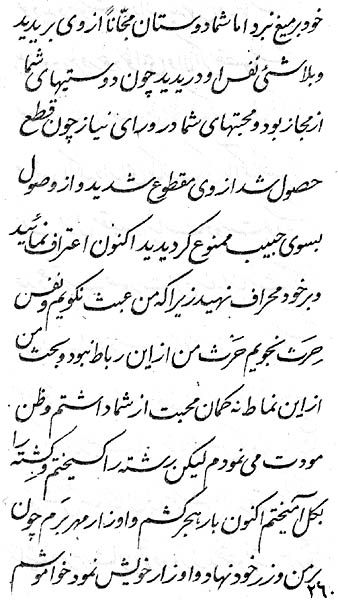 خود بر میغ نبرد اما شما دوستان مجّاناً از وی بریدید
و بلاشئ نفس او دریدید چون دوستیهای شما
از مجاز بود و محبتهای شما در ورای نیاز چون قطع
حصول شد از وی مقطوع شدید و از وصول
بسوی حبیب ممنوع گردیدید اکنون اعتراف نمائید
و بر خود محراف نهید زیرا که من عبث نگویم و نفس
حرث نجویم حرث من از این رباط نبود و بحث من
از این نماط نه گمان محبت از شما داشتم و ظن
مودت می نمودم لیکن رشته را گسیختم و کِشته را
بگل آمیختم اکنون بار هجر کشم و اوزار مهر برم چون
بر من وزر خود نهاد و اوزار خویش نمود خواموشم
۲۶۰